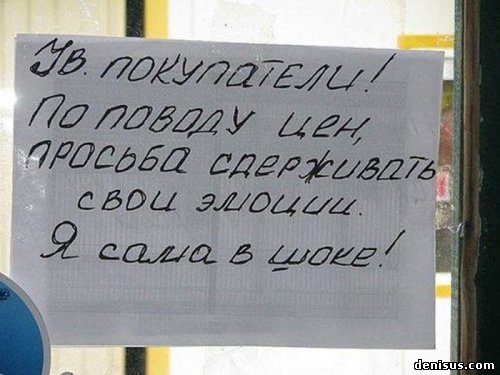 Ув. покупатели!
По поводу цен,
просьба сдерживать
свои эмоции.
Я сама в шоке!
denisus.com